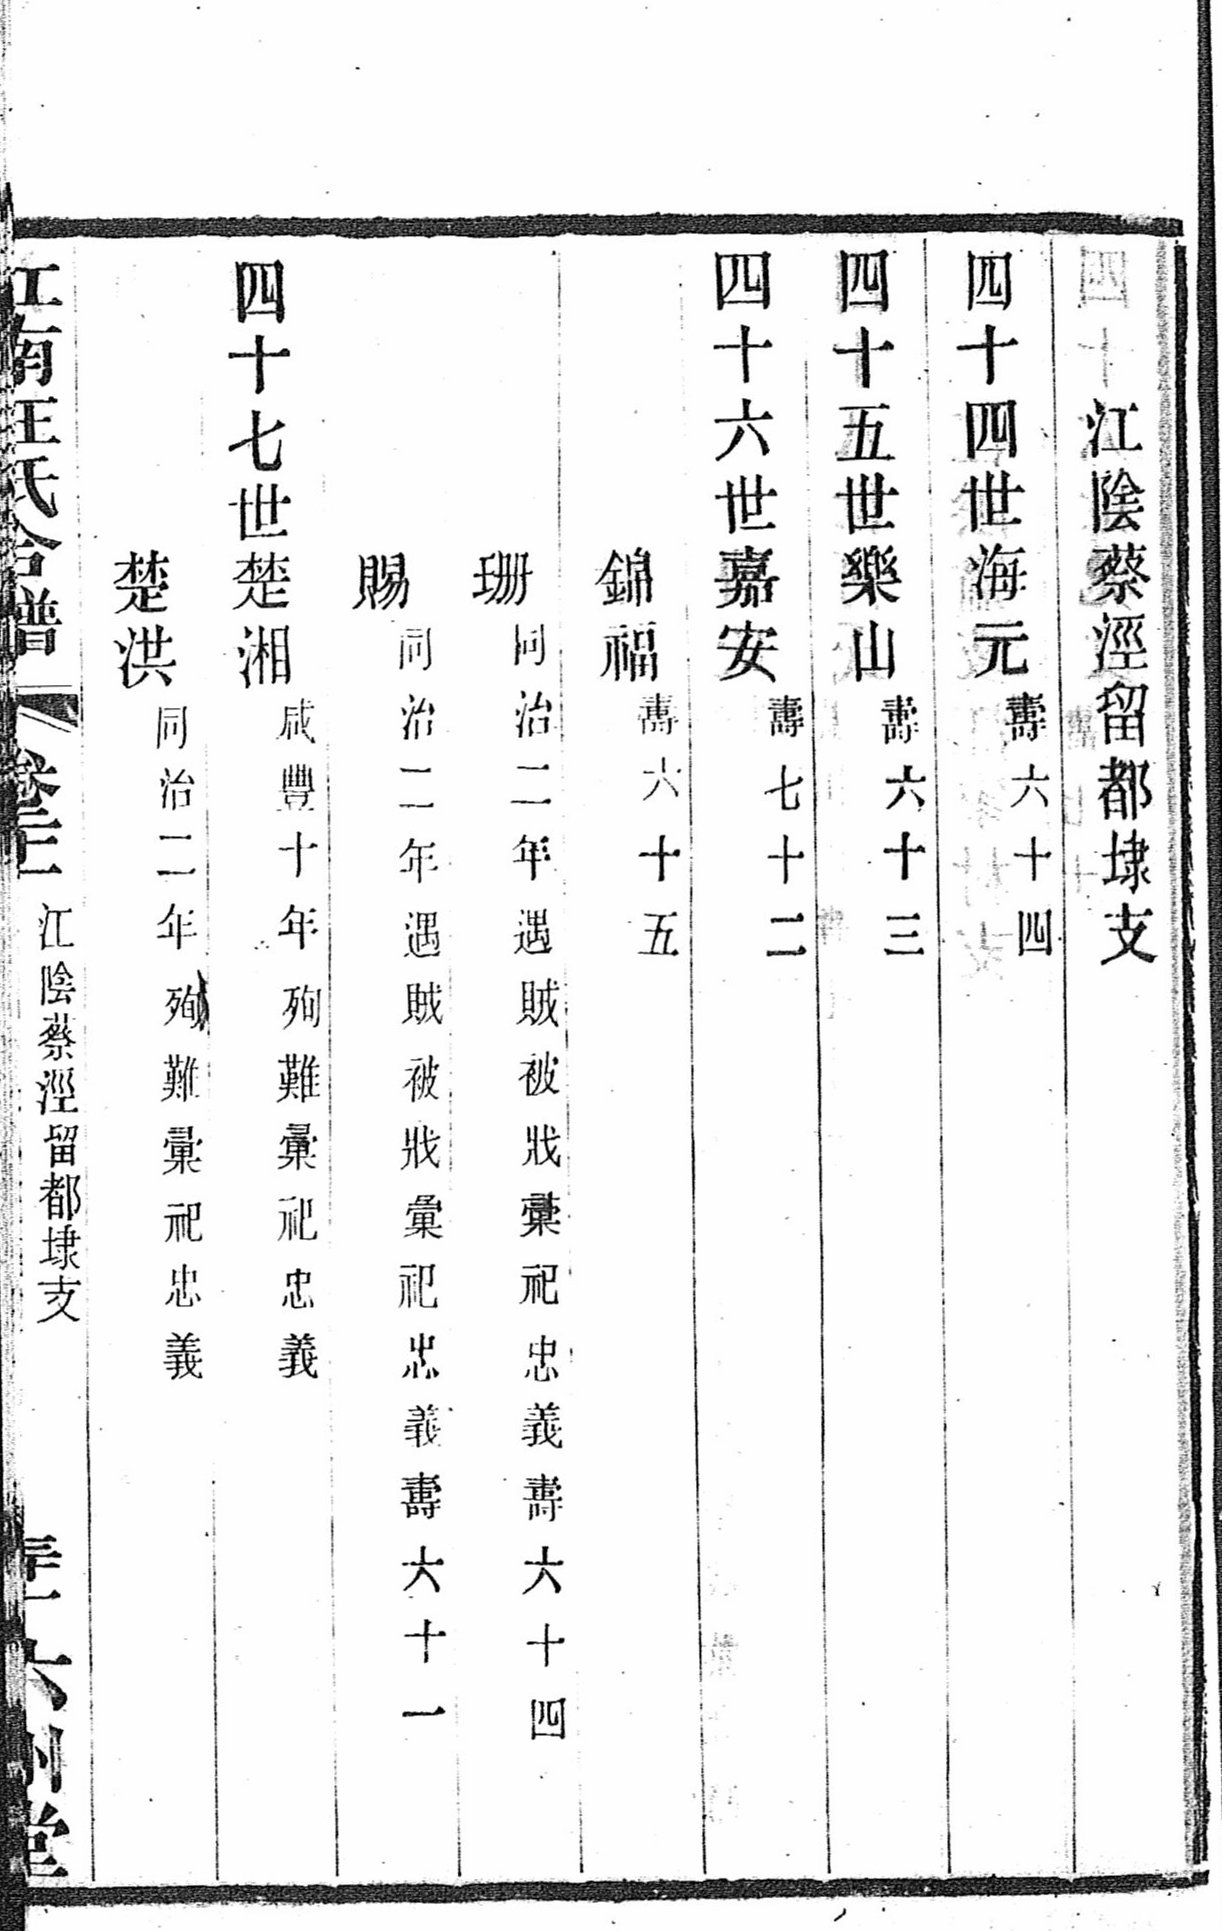 江陰蔡涇留都埭支
四十四世海元 壽六十四
四十五世樂山 壽六十三
四十六世嘉安 壽七十二
錦福 壽六十五
珊 同治二年遇賊被戕彙祀忠義壽六十四
賜 同治二年遇賊被戕彙祀忠義壽六十一
四十七世楚湘 咸豐十年殉難彙祀忠義
楚洪 同治二年殉難彙祀忠義
江南汪氏合譜 卷 江陰蔡涇留都埭支 六州堂